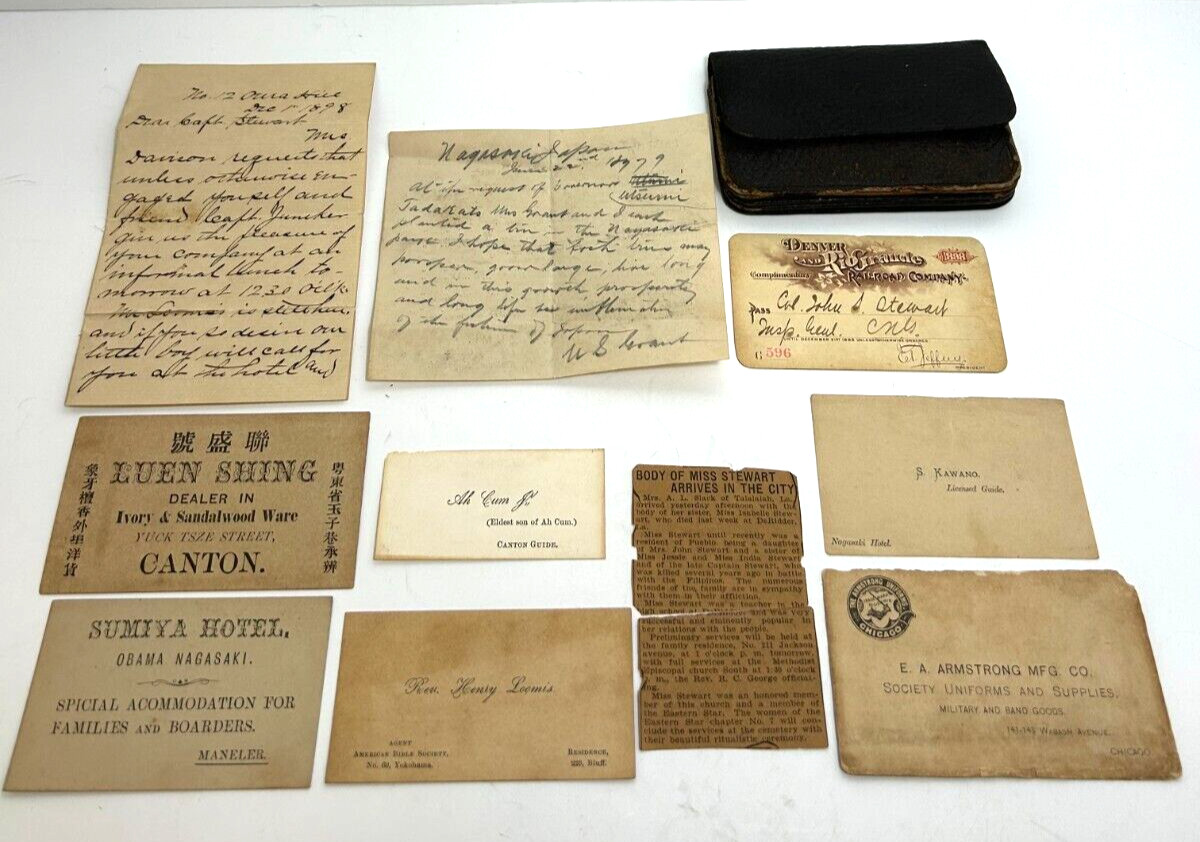 No. 12 Oura Hill
Dec 1st 1898
Dear Capt. Stewart
Mrs
Davison requests that
unless otherwise en-
gaged yourself and
friend Capt. Juncker
give us the pleasure of
your company at an
informal lunch to-
morrow at 12.30 Oclk.
Mr Loomis is
and if you so desire our
little boy will call for
you at the hotel and
Nagasaki Japan
June 22nd 1879
At the request of Governor
Utsumi
Tadakatsu Mrs Grant and I each
planted a tree in the Nagasaki
park. I hope that both trees may
prosper, grow large, live long
and in this growth prosperity
and long life be emblematic
of the future of Japan
U S Grant
DENVER
AND RIO GRANDE
Complimentary RAILROAD COMPANY.
1898
PASS Col. John S. Stewart
Insp. Genl. C.N.G.
UNTIL DECEMBER 31ST 1898 UNLESS OTHERWISE ORDERED
G 596
E T Jeffery
PRESIDENT
號盛聯
LUEN SHING
DEALER IN
Ivory & Sandalwood Ware
YUCK TSZE STREET,
CANTON.
象牙檀香外組洋貨
粤東省玉子巷承辦
Ah Cum Jr.
(Eldest son of Ah Cum.)
CANTON GUIDE.
BODY OF MISS STEWART
ARRIVES IN THE CITY
Mrs. A. L. Slack of Talalalah, La.,
arrived yesterday afternoon with the
body of her sister, Miss Isabelle Stew-
art, who died last week at DeRidder,
La.
Miss Stewart until recently was a
resident of Pueblo being a daughter
of Mrs. John Stewart and a sister of
Miss Jessie and Miss India Stewart
and of the late Captain Stewart, who
was killed several years ago in battle
with the Filipinos. The numerous
friends of the family are in sympathy
with them in their affliction.
Miss Stewart was a teacher in the
and was very
successful and eminently popular in
her relations with the people.
Preliminary services will be held at
the family residence, No. 111 Jackson
avenue, at 1 o'clock p. m. tomorrow,
with full services at the Methodist
Episcopal church South at 1:30 o'clock
p. m., the Rev. R. C. George officiat-
ing.
Miss Stewart was an honored mem-
ber of this church and a member of
the Eastern Star. The women of the
Eastern Star chapter No. 7 will con-
clude the services at the cemetery with
their beautiful ritualistic ceremony.
S. KAWANO.
Licensed Guide.
Nagasaki Hotel.
SUMIYA HOTEL,
OBAMA NAGASAKI.
SPICIAL ACOMMODATION FOR
FAMILIES AND BOARDERS.
MANELER.
Rev. Henry Loomis.
AGENT
AMERICAN BIBLE SOCIETY,
No. 60, Yokohama.
RESIDENCE,
223, Bluff.
THE E. A. ARMSTRONG UNIFORMS
CHICAGO
E. A. ARMSTRONG MFG. CO.
SOCIETY UNIFORMS AND SUPPLIES,
MILITARY AND BAND GOODS.
141-143 WABASH AVENUE.
CHICAGO